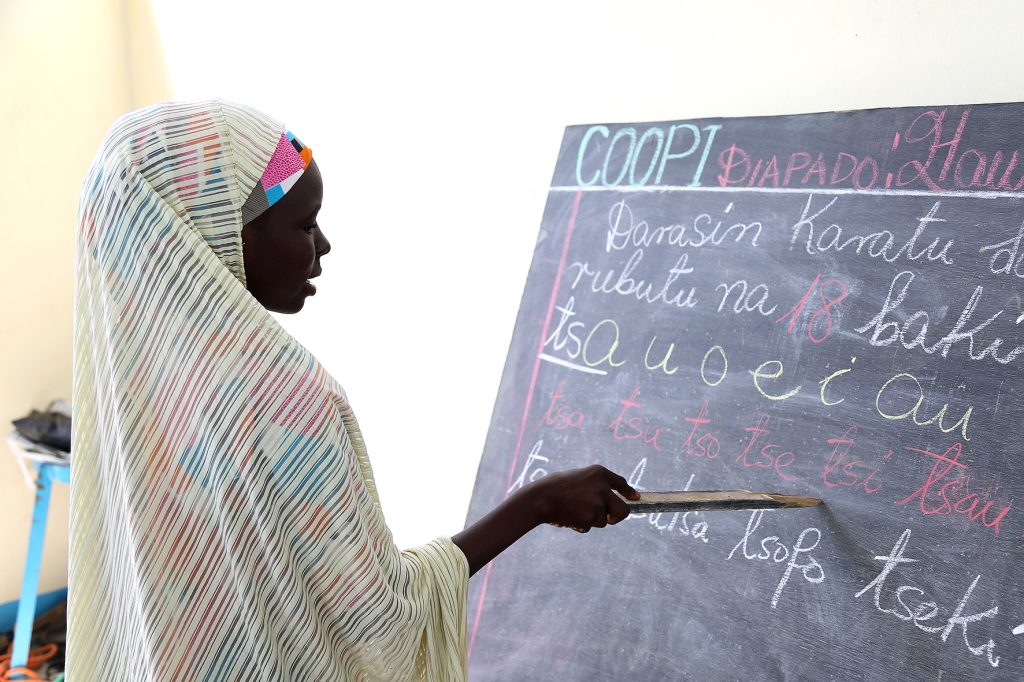 COOPI DIAPADO: Hau
Darasin Karatu da
rubutu na 18 baki
tsa u o e i au
tsa tsu tso tse tsi tsau
tsofo tseki